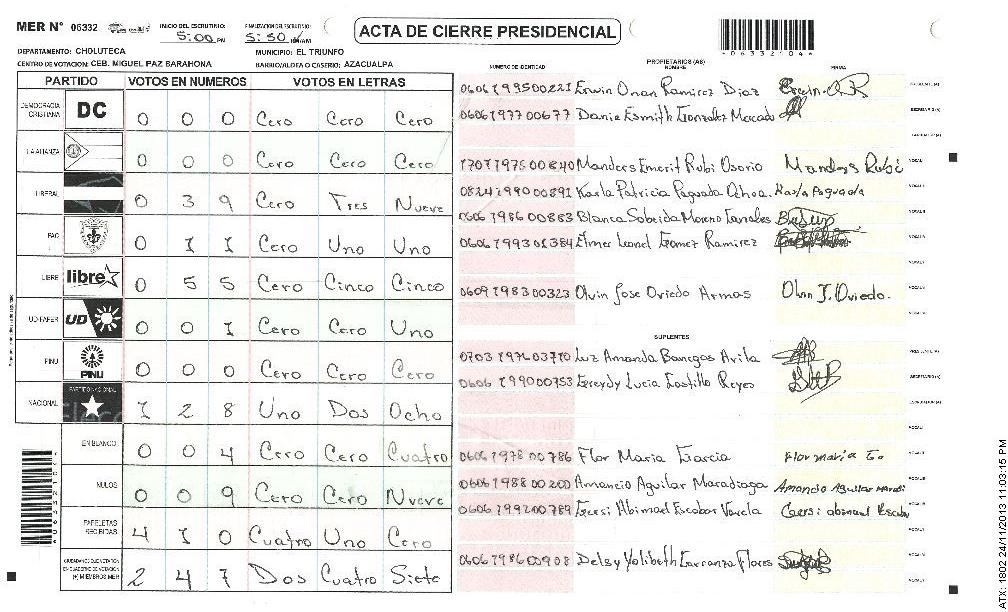 MER N° 06332 INICIO DEL ESCRUTINIO: 5:00 PM FINALIZACIÓN DEL ESCRUTINIO: 5:50
ACTA DE CIERRE PRESIDENCIAL
06332104
DEPARTAMENTO: CHOLUTECA MUNICIPIO: EL TRIUNFO
CENTRO DE VOTACION: CEB. MIGUEL PAZ BARAHONA BARRIO/ALDEA O CASERIO: AZACUALPA
PARTIDO VOTOS EN NUMEROS VOTOS EN LETRAS
DEMOCRACIA CRISTIANA DC 0 0 0 Cero Cero Cero
LA ALIANZA 0 0 0 Cero Cero Cero
LIBERAL 0 3 9 Cero Tres Nueve
PAC 0 1 1 Cero Uno Uno
LIBRE libre 0 5 5 Cero Cinco Cinco
UD-FAPER UD 0 0 1 Cero Cero Uno
PINU PINU 0 0 0 Cero Cero Cero
NACIONAL PARTIDO NACIONAL 1 2 8 Uno Dos Ocho
EN BLANCO 0 0 4 Cero Cero Cuatro
NULOS 0 0 9 Cero Cero Nueve
PAPELETAS RECIBIDAS 4 1 0 Cuatro Uno Cero
CIUDADANOS QUE VOTARON EN CUADERNO DE VOTACION (+) MIEMBROS MER 2 4 7 Dos Cuatro Siete
PROPIETARIOS (AS)
NUMERO DE IDENTIDAD NOMBRE FIRMA
0606199500221 Erwin Onan Ramirez Diaz PRESIDENTE (A)
0606197700677 Danie Esmith Gonzalez Mercado SECRETARIO (A)
ESCRUTADOR (A)
1707197500840 Manders Emerit Rubi Osorio Manders Rubi VOCAL I
0824199000891 Karla Patricia Paguada Ochoa. Karla Paguada VOCAL II
0606198600883 Blanca Sobeida Moreno Canales VOCAL III
0606199301384 Elmer Leonel Gomez Ramirez VOCAL IV
0609198300323 Olvin Jose Oviedo Armas Olvin J. Oviedo.
SUPLENTES
0703197603710 Luz Amanda Banegas Avila PRESIDENTE (A)
0606199000753 Greydy Lucia Castillo Reyes SECRETARIO (A)
ESCRUTADOR (A)
0606197800786 Flor Maria Garcia Flor maria Ga
0606198800200 Amancio Aguilar Maradiaga Amancio Aguilar Maradi
0606199200789 Gersi Abimael Escobar Varela Gersi abimael Escobar
0606198600908 Delsy Yolibeth Carranza Flores
ATX: 1802 24/11/2013 11:03:15 PM